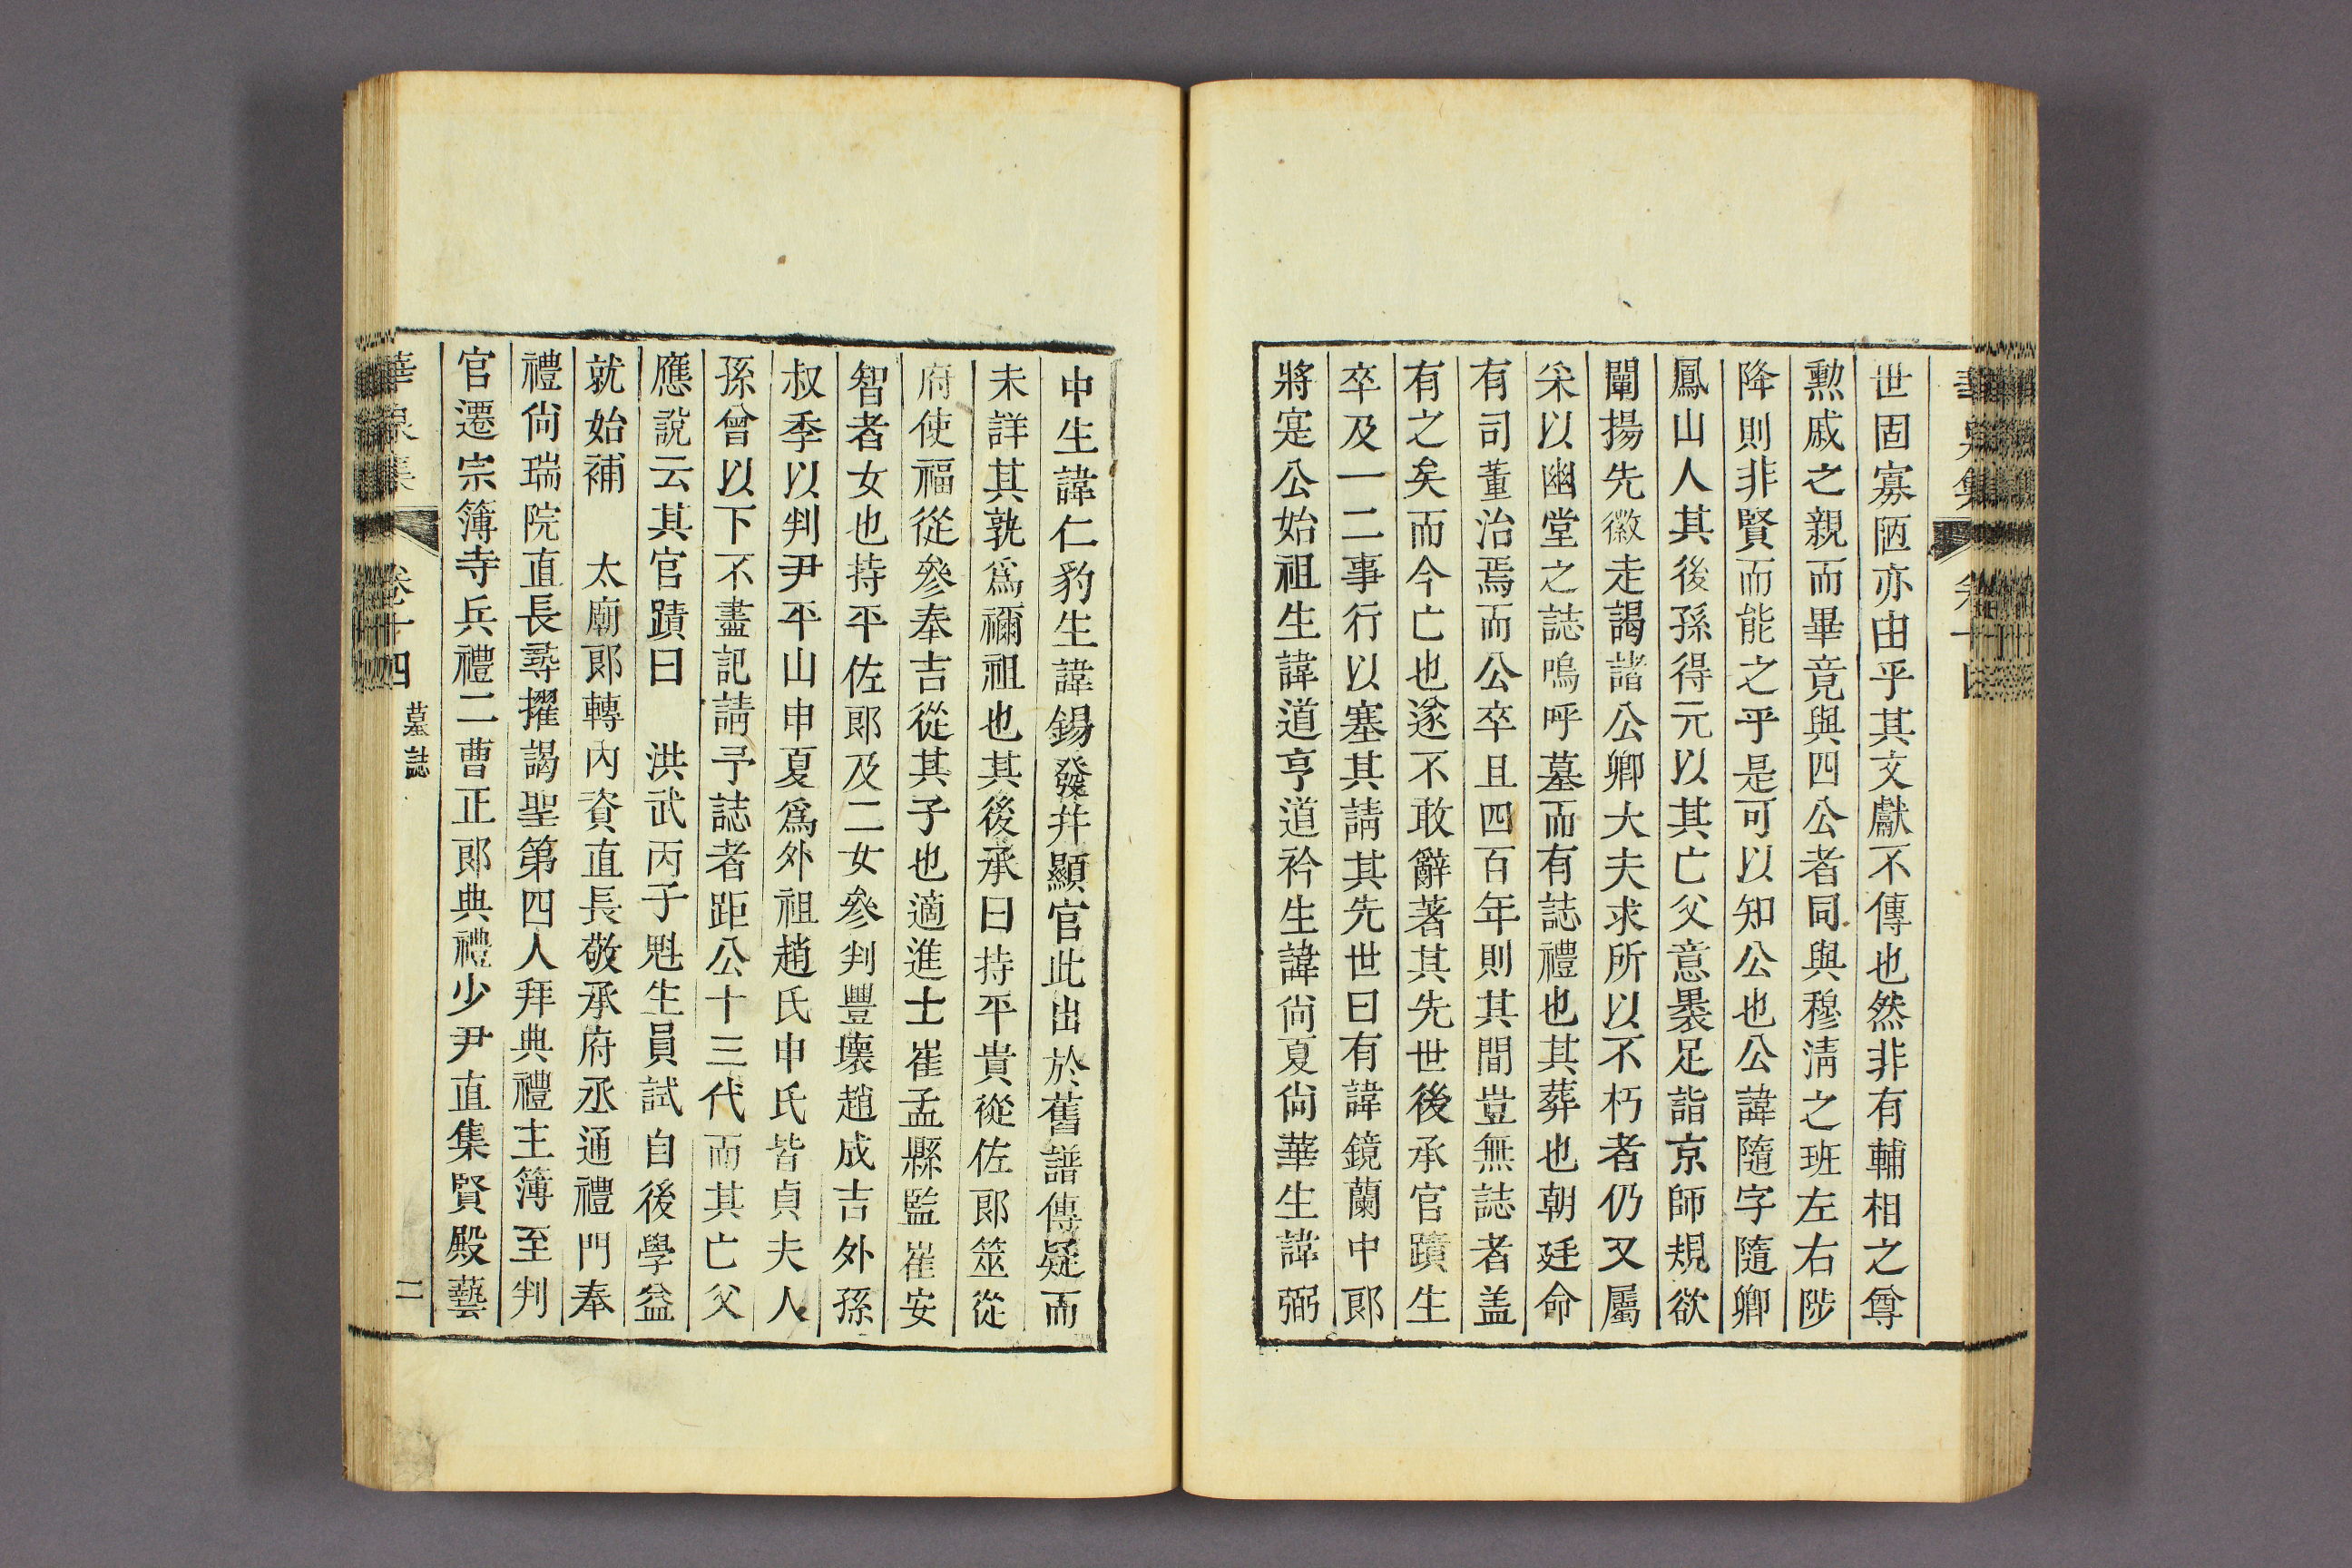 世固寡陋亦由乎其文獻不傳也然非有輔相之尊
勲戚之親而畢竟與四公者同與穆淸之班左右陟
降則非賢而能之乎是可以知公也公諱隨字隨卿
鳳山人其後孫得元以其亡父意褁足詣京師規欲
闡揚先徽走謁諸公卿大夫求所以不朽者仍又屬
采以幽堂之誌嗚呼墓而有誌禮也其葬也朝廷命
有司董治焉而公卒且四百年則其間豈無誌者盖
有之矣而今亡也遂不敢辭著其先世後承官蹟生
卒及一二事行以塞其請其先世曰有諱鏡蘭中郞
將寔公始祖生諱道亨道衿生諱尙夏尙華生諱弼
中生諱仁豹生諱錫發幷顯官此出於舊譜傳疑而
未詳其孰爲禰祖也其後承曰持平貴從佐郞筮從
府使福從參奉吉從其子也適進士崔孟縣監崔安
智者女也持平佐郞及二女參判豐壞趙成吉外孫
叔季以判尹平山申夏爲外祖趙氏申氏皆貞夫人
孫曾以下不盡記請予誌者距公十三代而其亡父
應說云其官蹟曰 洪武丙子魁生員試自後學益
就始補 太廟郞轉內資直長敬承府丞通禮門奉
禮尙瑞院直長尋擢謁聖第四人拜典禮主簿至判
官遷宗簿寺兵禮二曹正郞典禮少尹直集賢殿藝
華泉集
卷十四
墓誌
二